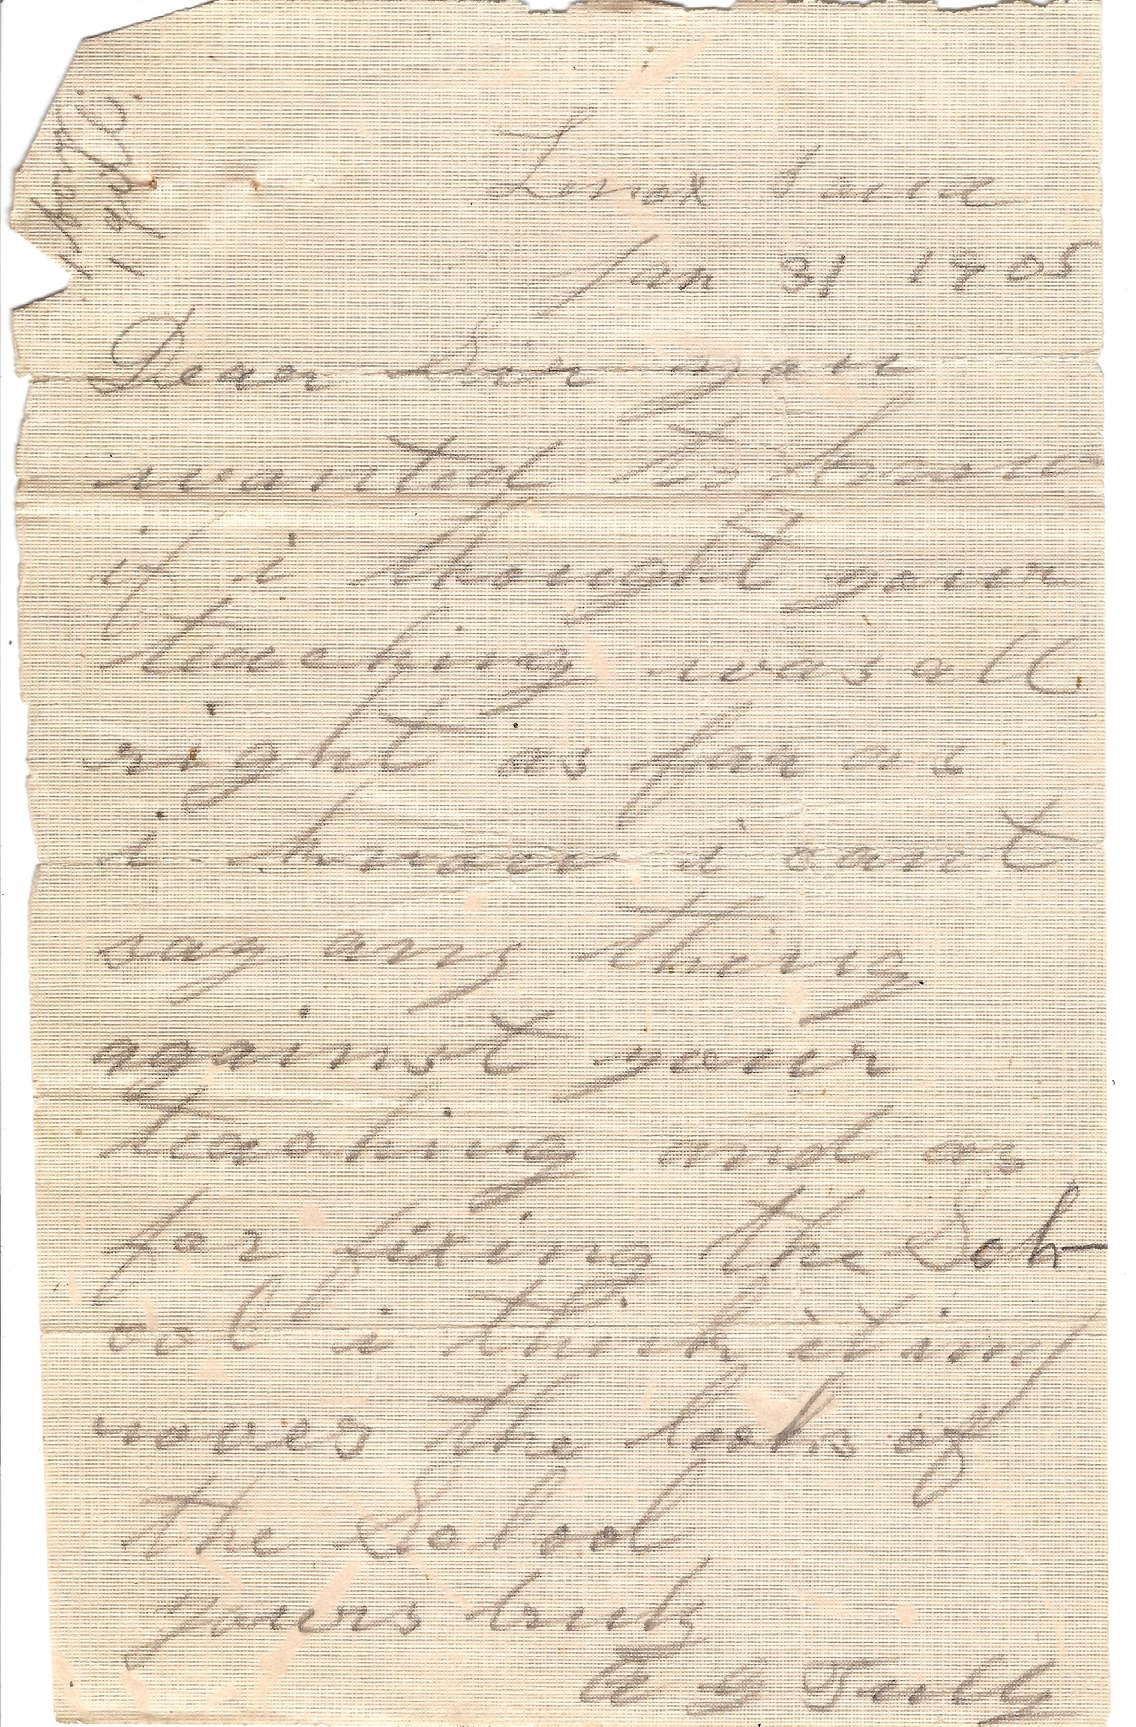 Lenox Iowa
Jan 31 1905
Dear Sir you
wanted to know
if i thought your
teaching was all
right as far as
i know i cant
say any thing
against your
teaching and as
for fixing the Sch
ool i think it imp
roves the looks of
the School
yours truly
E G Tully